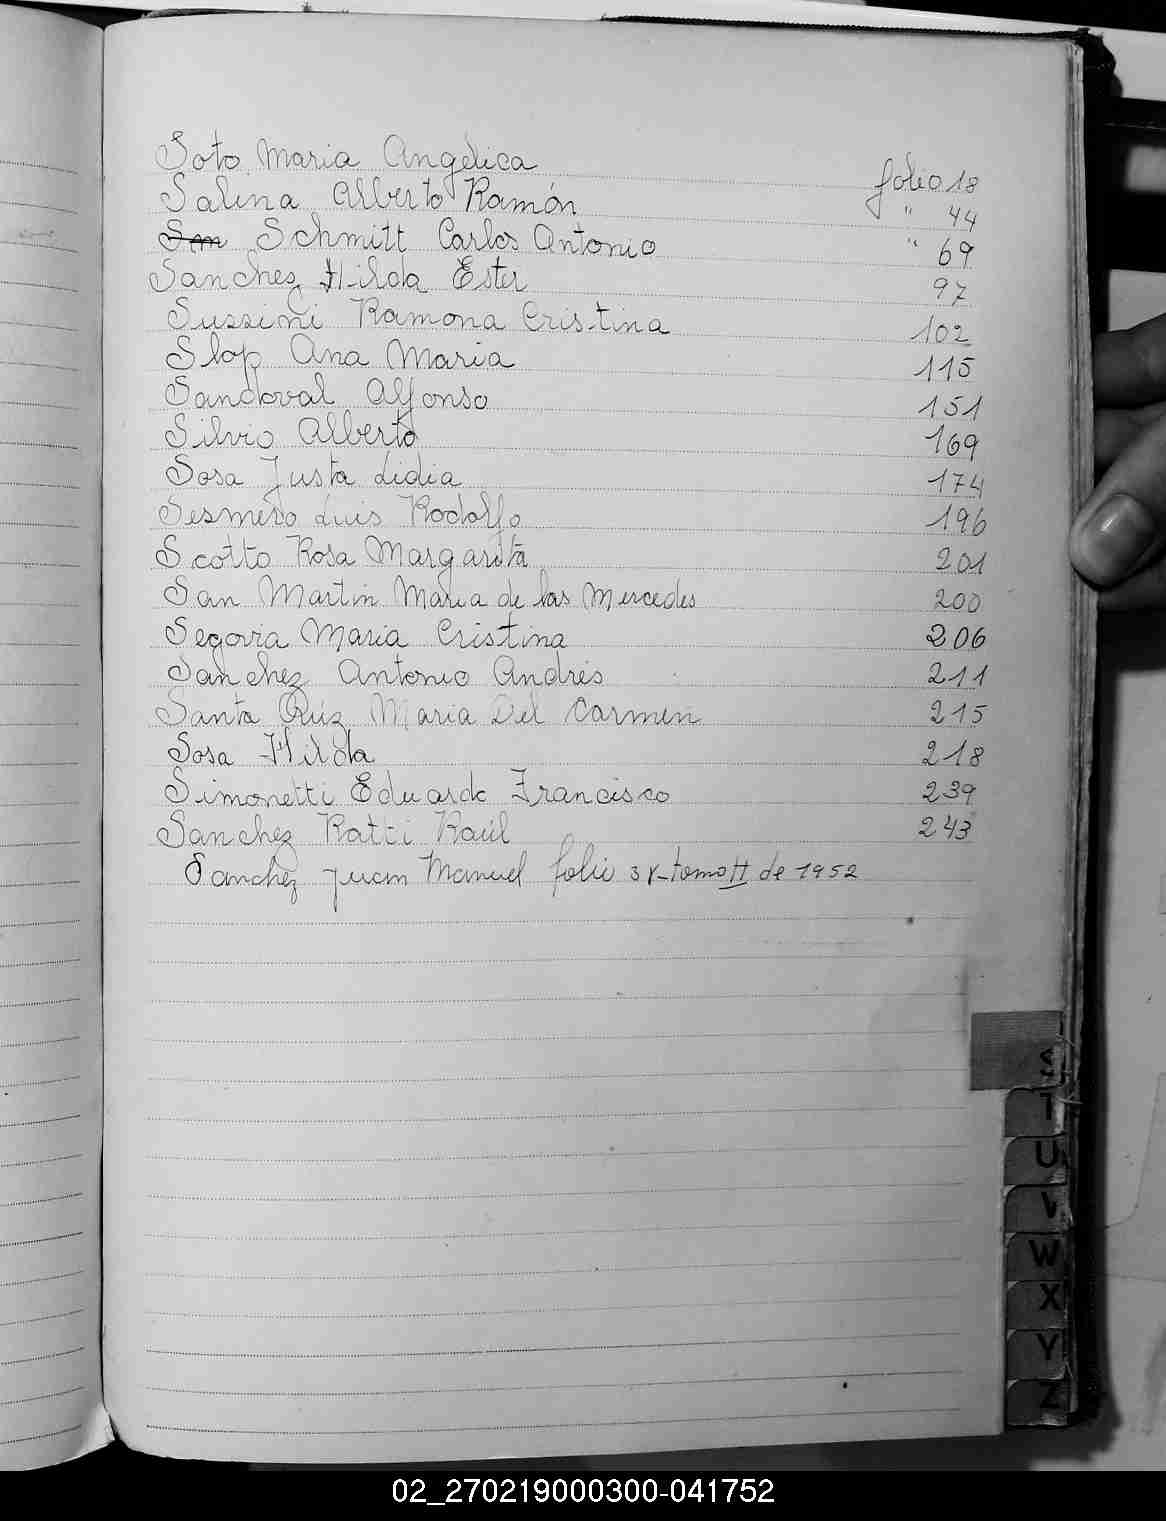 Soto Maria Angelica folio 18
Salina Alberto Ramón " 44
Sm Schmitt Carlos Antonio " 69
Sanchez Hilda Ester 97
Sussini Ramona Cristina 102
Slop Ana Maria 115
Sandoval Alfonso 151
Silvio Alberto 169
Sosa Justa Lidia 174
Sesmero Luis Rodolfo 196
Scotto Rosa Margarita 201
San Martin Maria de las Mercedes 200
Segovia Maria Cristina 206
Sanchez Antonio Andrés 211
Santa Ruiz Maria Del Carmen 215
Sosa Hilda 218
Simonetti Eduardo Francisco 239
Sanchez Ratti Raúl 243
Sanchez Juan Manuel folio tomo II de 1952
S
T
U
V
W
X
Y
Z
02_270219000300-041752